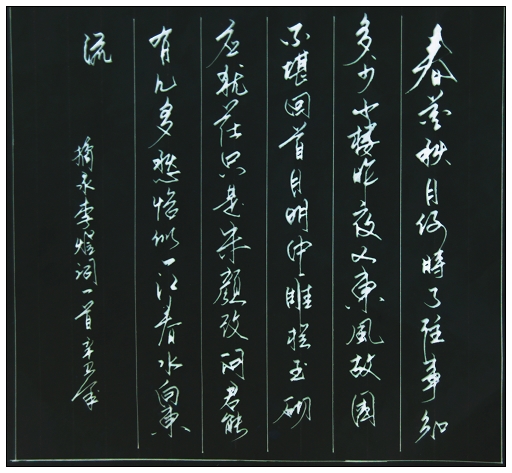 春花秋月何時了往事知
多少小樓昨夜又東風故國
不堪回首月明中雕栏玉砌
应犹在只是朱颜改问君能
有几多愁恰似一江春水向東
流
摘录李煜词一首辛卯